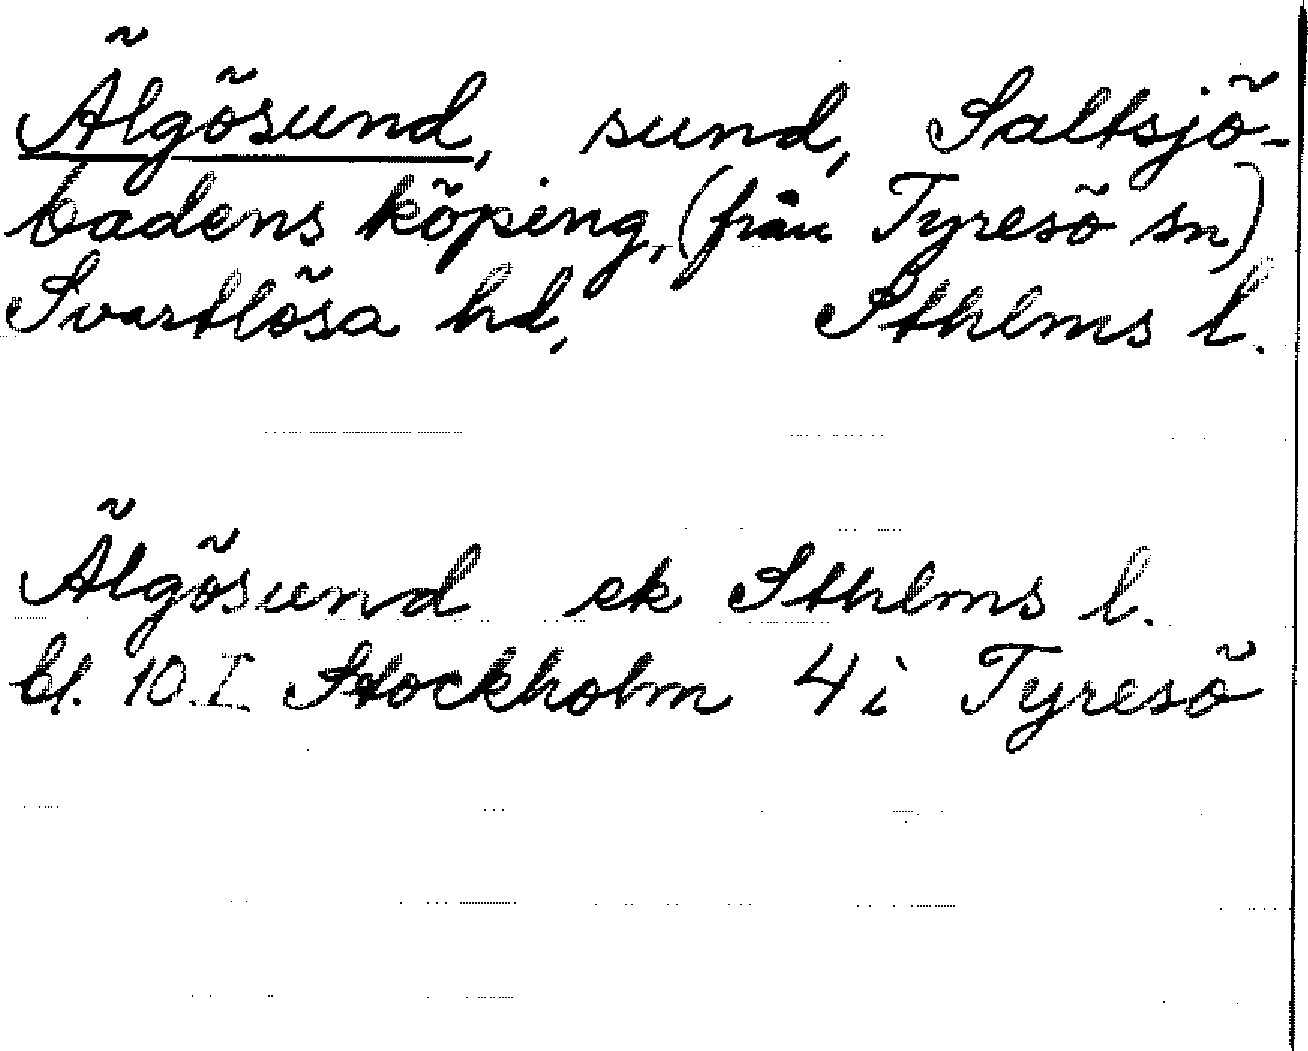 Älgösund, sund, Saltsjö-
badens köping, (från Tyresö sn)
Svartlösa hd, Sthlms l.
Älgösund ek Sthlms l.
bl. 10.I Stockholm 4i Tyresö